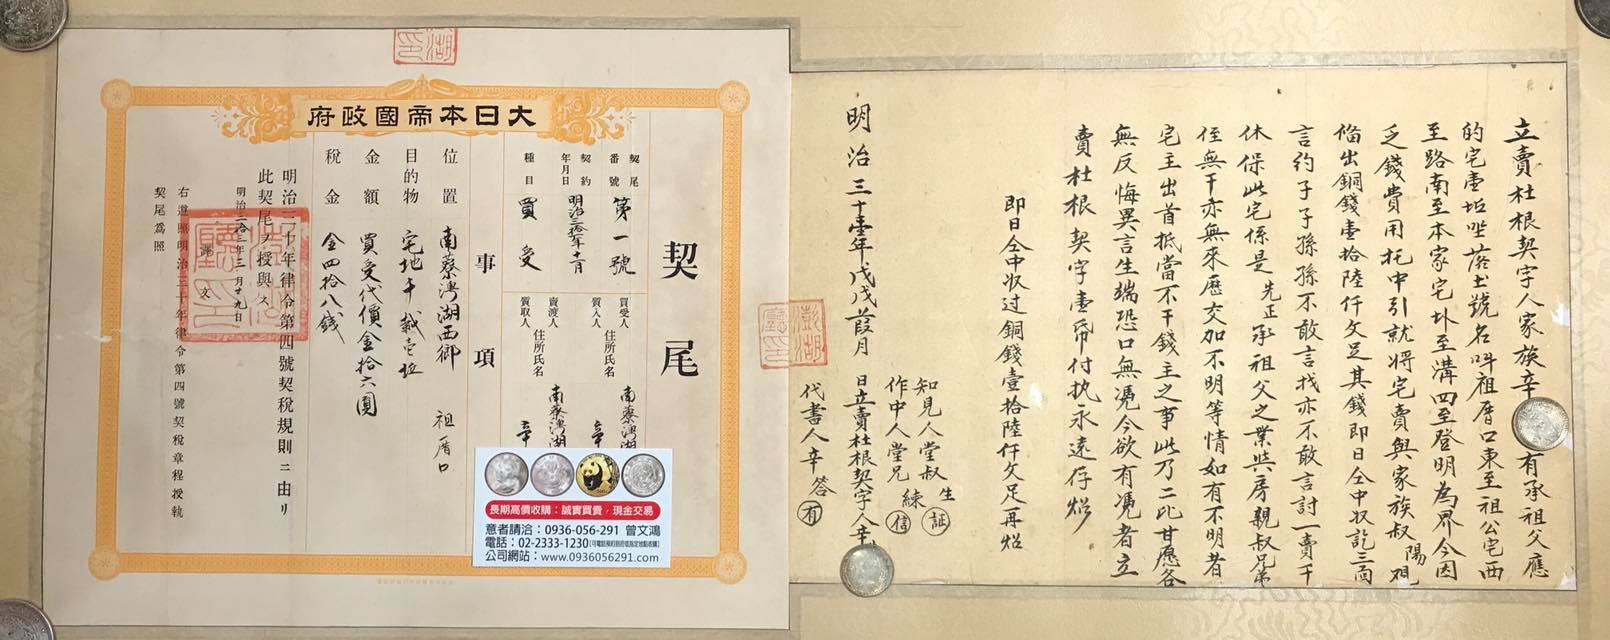 立賣杜根契字人家族辛有承祖父應
的宅壹坵坐落土號名呌祖厝口東至祖公宅西
至路南至本家宅北至溝四至登明為界今因
乏錢費用托中引就將宅賣與家族叔陽觀
偹出銅錢壹拾陸仟文足其錢即日仝中收訖三面
言約子子孫孫不敢言找亦不敢言討一賣千
休保此宅係是先正承祖父之業與房親叔兄弟
侄無干亦無來歷交加不明等情如有不明者
宅主出首抵當不干錢主之事此乃二比甘愿各
無反悔異言生端恐口無憑今欲有憑者立
賣杜根契字壹帋付执永遠存炤
即日仝中收过銅錢壹拾陸仟文足再炤
知見人堂叔生
作中人堂兄練
證
信
明治三十壹年戊戌葭月 日立賣杜根契字人辛
代書人辛答
有
澎湖
廳印
湖
印
大日本帝國政府
契尾
契尾番號 第一號
契約年月日 明治三拾一年十一月
種目 買受
買受人
買入人
住所氏名
南藔湾湖
辛
賣渡人
質取人
住所氏名
南藔湾湖
辛
事項
位置 南藔湾湖西鄉 祖厝口
目的物 宅地千载壱坵
金額 買受代價金拾六圓
税金 金四拾八錢
明治三十年律令第四號契税規則ニ由リ
此契尾ヲ授與ス
明治三拾三年三月廿九日
譯文
右遵照明治三十年律令第四號契税章程授執
契尾爲照
長期高價收購：誠實買賣，現金交易
意者請洽：0936-056-291 曾文鴻
電話：02-2333-1230(可電話預約到府或指定地點收購)
公司網站：www.0936056291.com